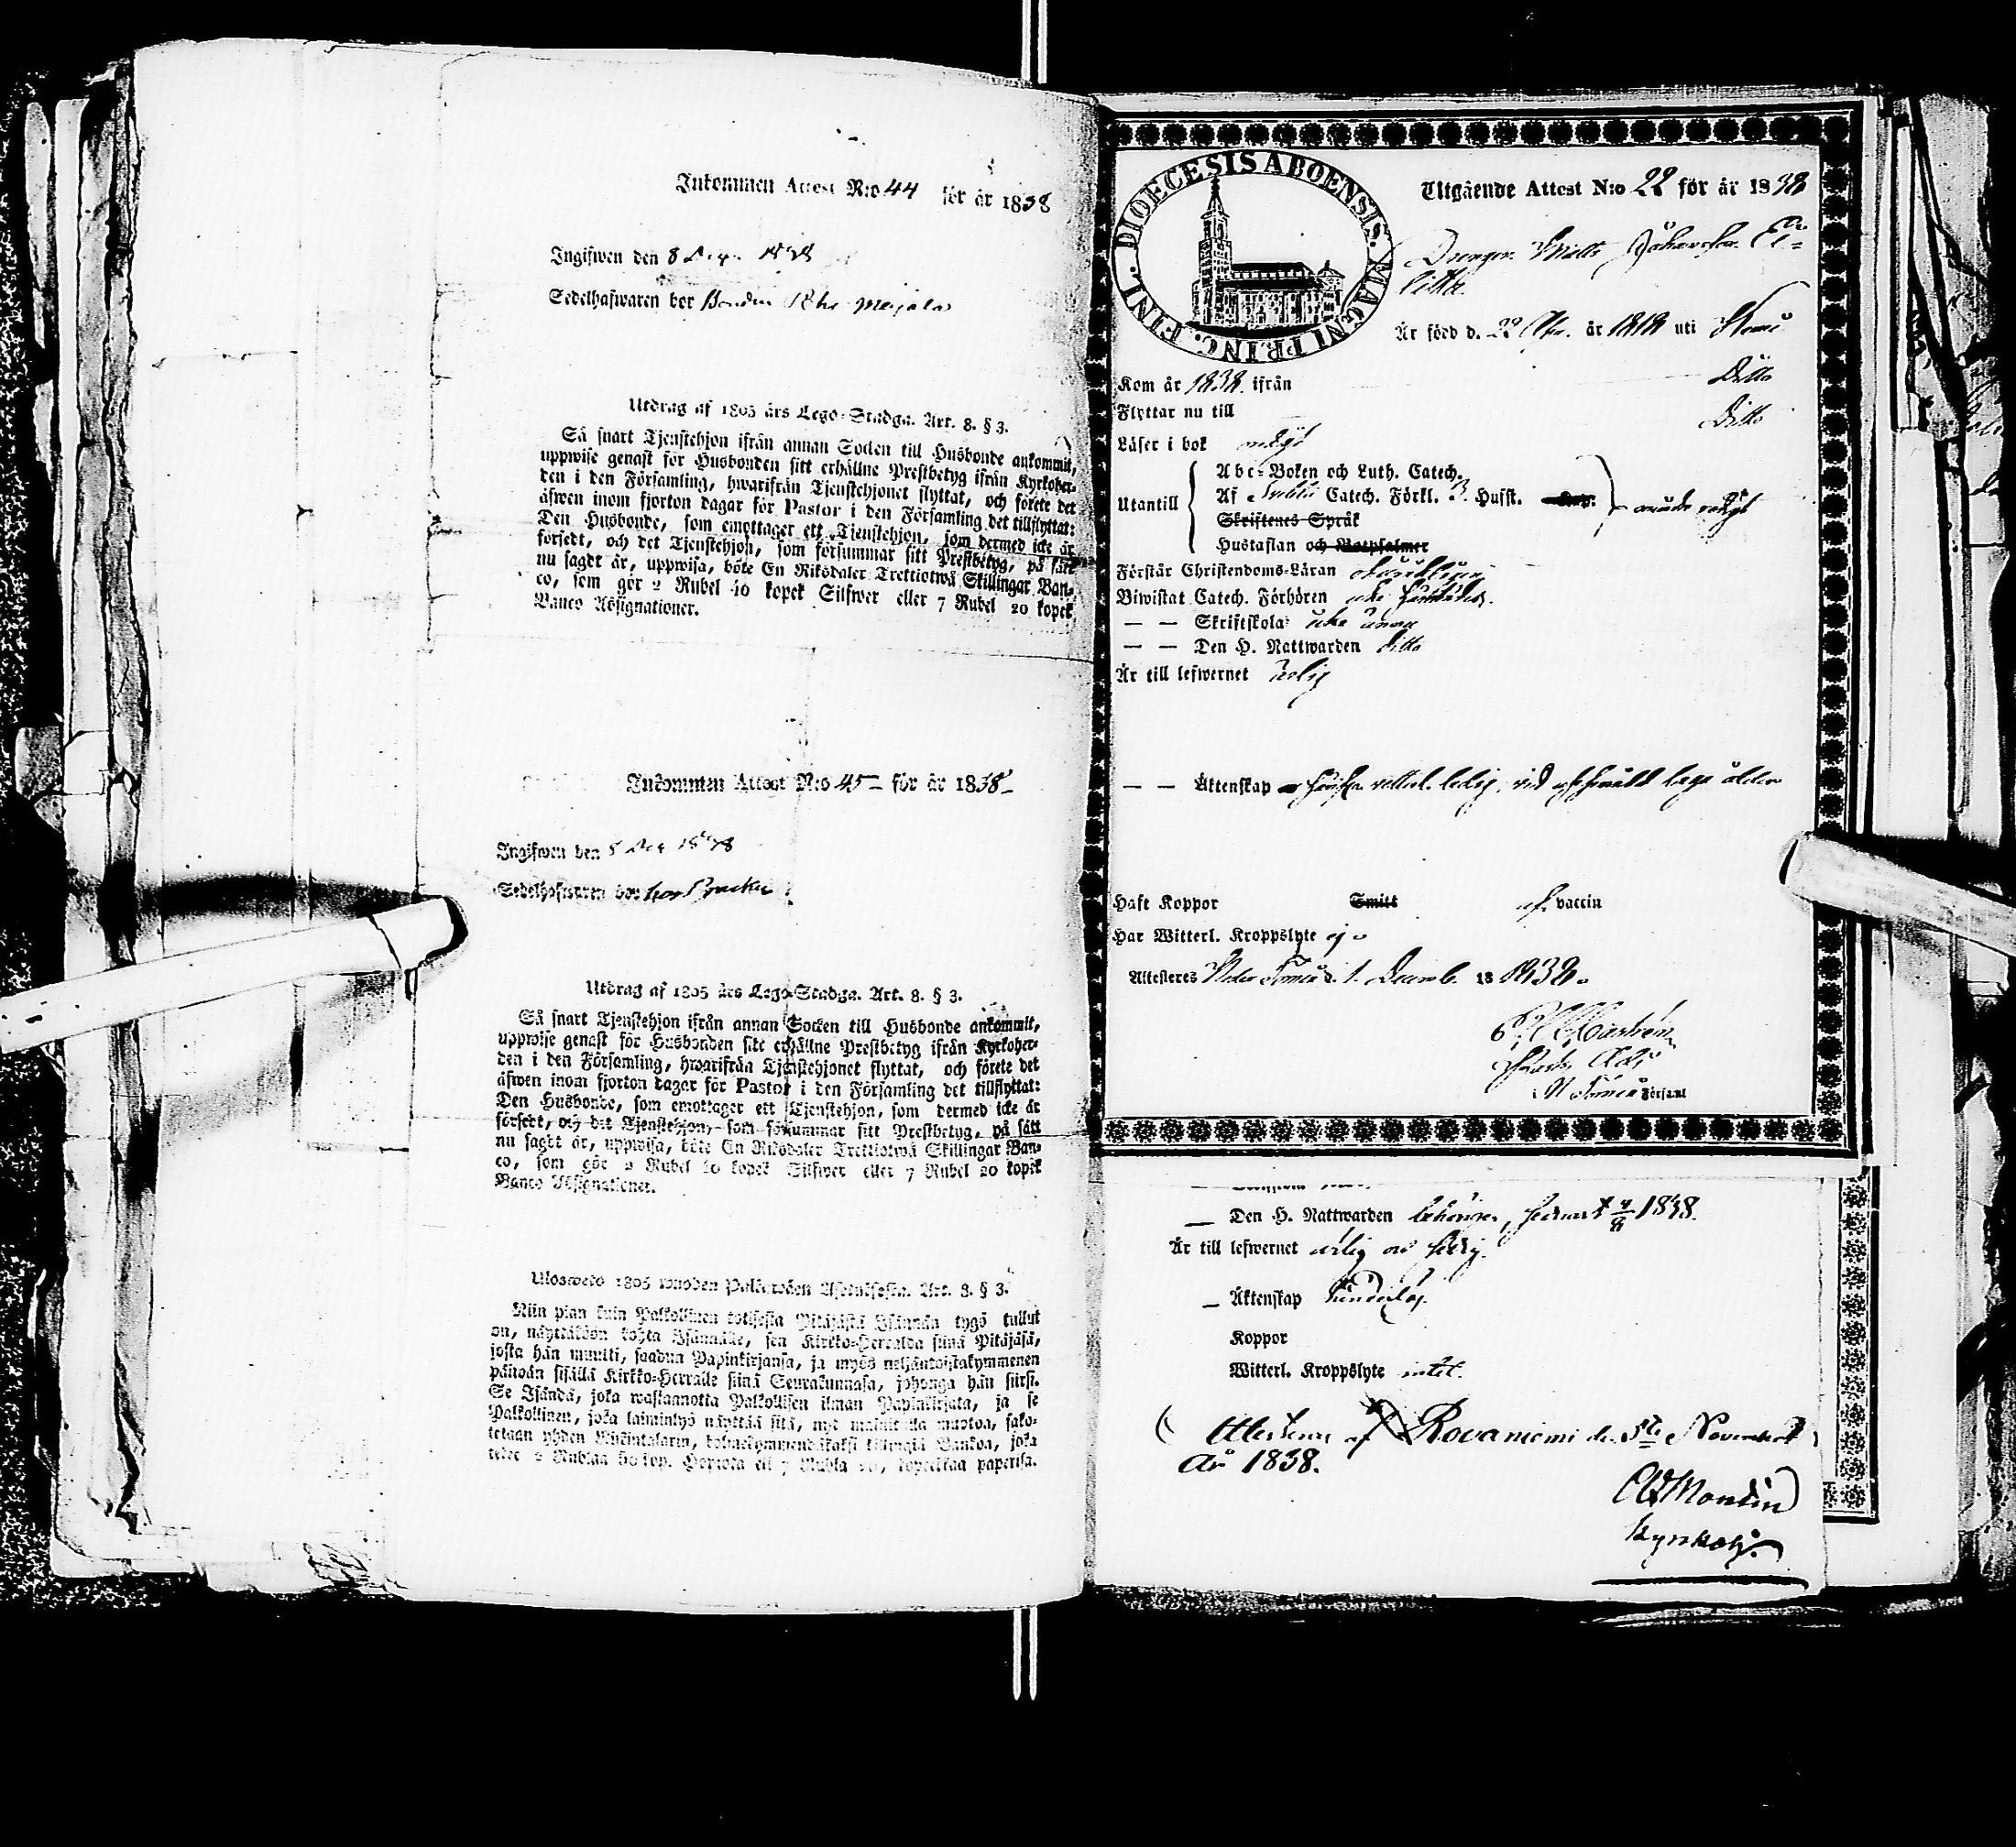 Inkommen Attest N:o 44 för år 1838
Ingifwen den 8 Dec. 1838
Sedelhafwaren bor Bonden
Utdrag af 1805 års Lego-Stadga. Art. 8. § 3.
Så snart Tjenstehjon ifrån annan Socken till Husbonde ankommit,
uppwise genast för Husbonden sitt erhållne Prestbetyg ifrån Kyrkoher-
den i den Församling, hwarifrån Tjenstehjonet flyttat, och förete det
äfwen inom fjorton dagar för Pastor i den Församling det tillflyttat:
Den Husbonde, som emottager ett Tjenstehjon, som dermed icke är
försedt, och det Tjenstehjon, som försummar sitt Prestbetyg, på sätt
nu sagdt är, uppwisa, böte En Riksdaler Trettiotwå Skillingar Ban-
co, som gör 2 Rubel 40 kopek Silfwer eller 7 Rubel 20 kopek
Banco Assignationer.
Inkommen Attest N:o 45 för år 1838
Ingifwen den 8 Dec 1838
Sedelhafwaren bor hos
Utdrag af 1805 års Lego-Stadga. Art. 8. § 3.
Så snart Tjenstehjon ifrån annan Socken till Husbonde ankommit,
uppwise genast för Husbonden sitt erhållne Prestbetyg ifrån Kyrkoher-
den i den Församling, hwarifrån Tjenstehjonet flyttat, och förete det
äfwen inom fjorton dagar för Pastor i den Församling det tillflyttat:
Den Husbonde, som emottager ett Tjenstehjon, som dermed icke är
försedt, och det Tjenstehjon, som försummar sitt Prestbetyg, på sätt
nu sagdt är, uppwisa, böte En Riksdaler Trettiotwå Skillingar Ban-
co, som gör 2 Rubel 40 kopek Silfwer eller 7 Rubel 20 kopek
Banco Assignationer.
Uloswето 1805 wuoden Palkawäen Asetuksesta. Art. 8. § 3.
Niin pian kuin Palkollinen toisesta Pitäjästä Isännän tygö tullut
on, näyttäköön kohta Isännälle, sen Kirkko-Herralda siinä Pitäjäsä,
josta hän muutti, saadun Papinkirjansa, ja myös neljäntoistakymmenen
päiwän sisällä Kirkko-Herralle siinä Seurakunnasa, johonga hän siirsi.
Se Isändä, joka wastaanotta Palkollisen ilman Papinkirjata, ja se
Palkollinen, joka laiminlyö näyttää sitä, nyt mainitulla muotoa, sako-
tetaan yhden Riikintalarin, kolmekymmendäkaksi killingiä Bankoa, joka
tekee 2 Rublaa 40 kop. Hopiota eli 7 Rubla 20 kopeekkaa paperisa.
DIOECESIS ABOENSIS. MAGNI PRINC. FINL.
Utgående Attest N:o 22 för år 1838
Drengen Matts Johansson
Är född d. 22 år 1818 uti Kemi
Kom år 1838 ifrån Ditto
Flyttar nu till Ditto
Läser i bok
Utantill
Abc-Boken och Luth. Catech.
Af Catech. Förkl. Husst.
Skriftenes Språk
Hustaflan och Botpsalmer
Förstår Christendoms-Läran
Biwistat Catech. Förhören
— — Skriftskola icke ännu
— — Den H. Nattwarden ditto
Är till lefwernet ärlig
— — Äktenskap ledig, vid
Haft Koppor Smitt af vaccin
Har Witterl. Kroppslyte ej
Attesteres Neder Torneå d. 1. Decemb. 18 1838.
N Torneå Församl
— Den H. Nattwarden 1838.
Är till lefwernet ärlig och
— Äktenskap hinderlös.
Koppor
Witterl. Kroppslyte intet.
Attesterar af Rovaniemi den 5te November
år 1838.
Kyrkoh.